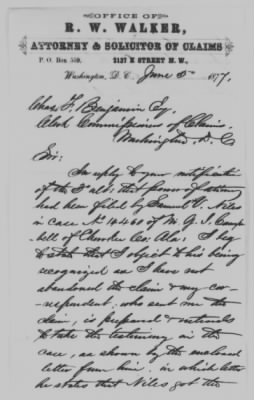 OFFICE OF
R. W. WALKER,
ATTORNEY & SOLICITOR OF CLAIMS
P. O. Box 559. 2137 K STREET N. W.,
Washington, D. C. June 5" 1877.
Chas. F. Benjamin Esq.
Clerk Commissioners of Claims.
Washington, D. C.
Sir:
In reply to your notification
of the 2d ulto; that power of attorney
had been filed by Samuel V. Niles
in case No. 14460 of M. G. J. Camp-
bell of Cherokee Co. Ala: I beg
to state that I object to his being
recognized as I have not
abandoned the claim & my cor-
respondent, who sent me the
claim, is prepared & intends
to take the testimony in the
case, as shown by the enclosed
letter from him, in which letter
he states that Niles got the